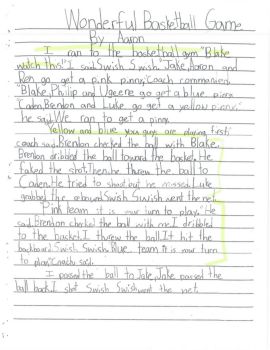 Wonderful Basketball Game
By Aaron
I ran to the basketball gym. "Blake
watch this." I said. Swish Swish. "Jake, Aaron and
Ren go get a pink pinny," Coach commanded.
"Blake, Phillip and Ugeere go get a blue pinny
"Caden, Brendon and Luke go get a yellow pinny,"
he said. We ran to get a pinny.
"Yellow and blue you guys are playing first,"
coach said. Brendon checked the ball with Blake.
Brendon dribbled the ball toward the basket. He
faked the shot. Then he threw the ball to
Caden. He tried to shoot but he missed. Luke
grabbed the rebound. Swish Swish went the net.
"Pink team it is your turn to play." He
said. Brendon checked the ball with me. I dribbled
to the basket. I threw the ball. It hit the
backboard. Swish Swish. "Blue team it is your turn
to play," Coach said.
I passed the ball to Jake, Jake passed the
ball back. I shot Swish Swish went the net.